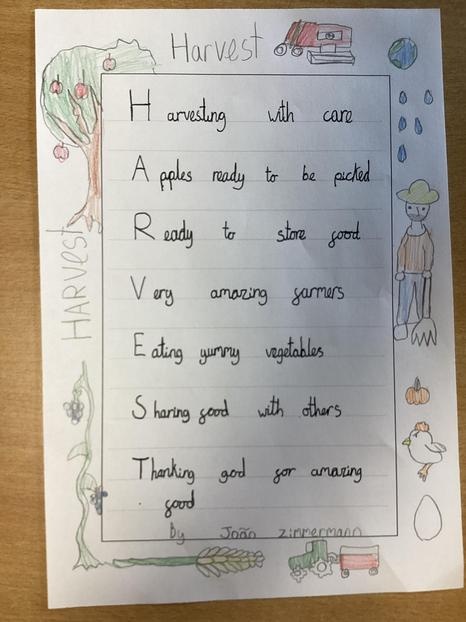 Harvest
Harvesting with care
Apples ready to be picked
Ready to store food
Very amazing farmers
Eating yummy vegetables
Sharing food with others
Thanking god for amazing
food
By João zimmermann
HARVEST